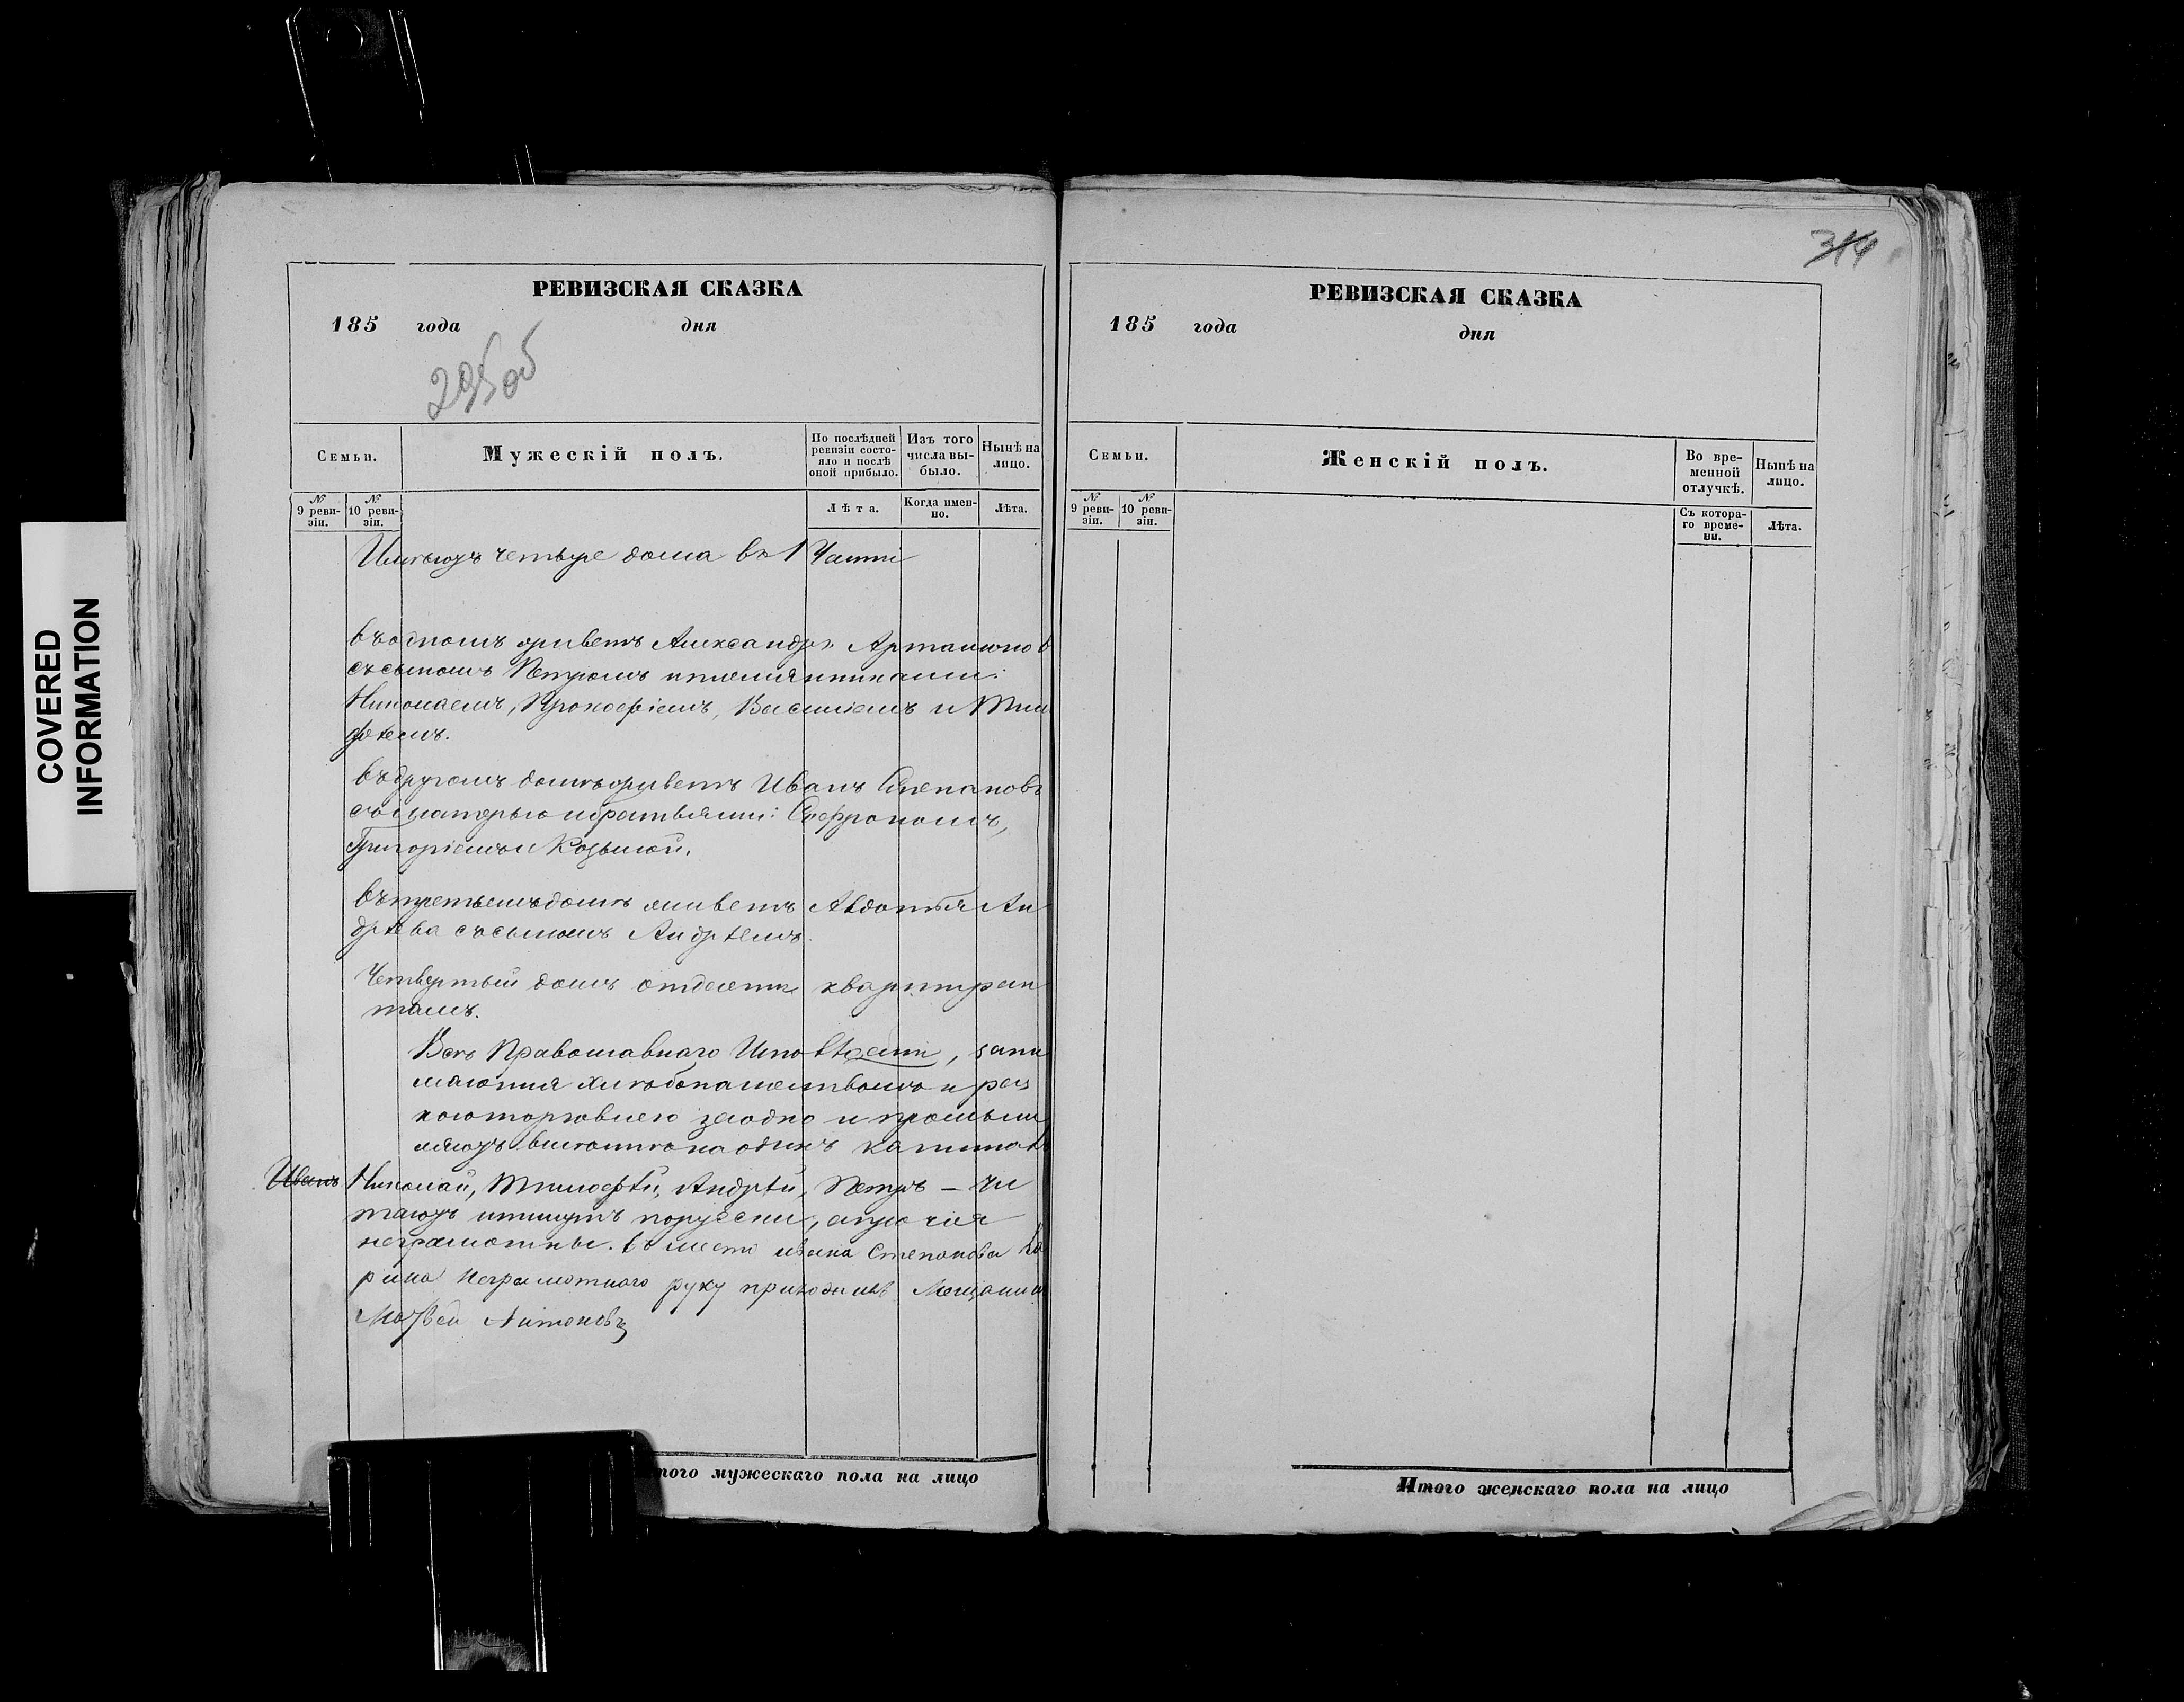 COVERED
INFORMATION
РЕВИЗСКАЯ СКАЗКА
185 года дня
295об
Семьи.
Мужескій полъ.
По послѣдней
ревизіи состо-
яло и послѣ
оной прибыло.
Изъ того
числа вы-
было.
Нынѣ на
лицо.
№
9 реви-
зіи.
№
10 реви-
зіи.
Лѣта.
Когда имен-
но.
Лѣта.
Имѣютъ четыре дома въ 1 Части
въ одномъ живетъ Александръ Артамонов
съ сыномъ Петромъ и племянниками:
Николаемъ, Прокофіемъ, Василіемъ и Тим
фѣемъ.
въ другомъ домѣ живетъ Иванъ Степановъ
съ матерью и братьями: Софрономъ,
Григоріемъ и Козьмой.
въ третьемъ домѣ живетъ Авдотья Ан
дрѣева съ сыномъ Андрѣемъ.
Четвертый домъ отдается квартиран
тамъ.
Всѣ Православнаго Исповѣданія, зани
маются хлѣбопашествомъ и
торговлею заодно и промыш
ляютъ вмѣстѣ на одинъ капиталъ
Иванъ Николай, Тимофѣй, Андрѣй, Петръ - чи
таютъ и пишутъ по русски, а прочія
неграмотны. въ место ивана Степанова
рина неграмотного руку приложилъ Мещанин
Матвей Антоновъ
314
РЕВИЗСКАЯ СКАЗКА
185 года дня
Семьи.
Женскій полъ.
Во вре-
менной
отлучкѣ.
Нынѣ на
лицо.
№
9 реви-
зіи.
№
10 реви-
зіи.
Съ котора-
го време-
ни.
Лѣта.
того мужескаго пола на лицо
Итого женскаго пола на лицо